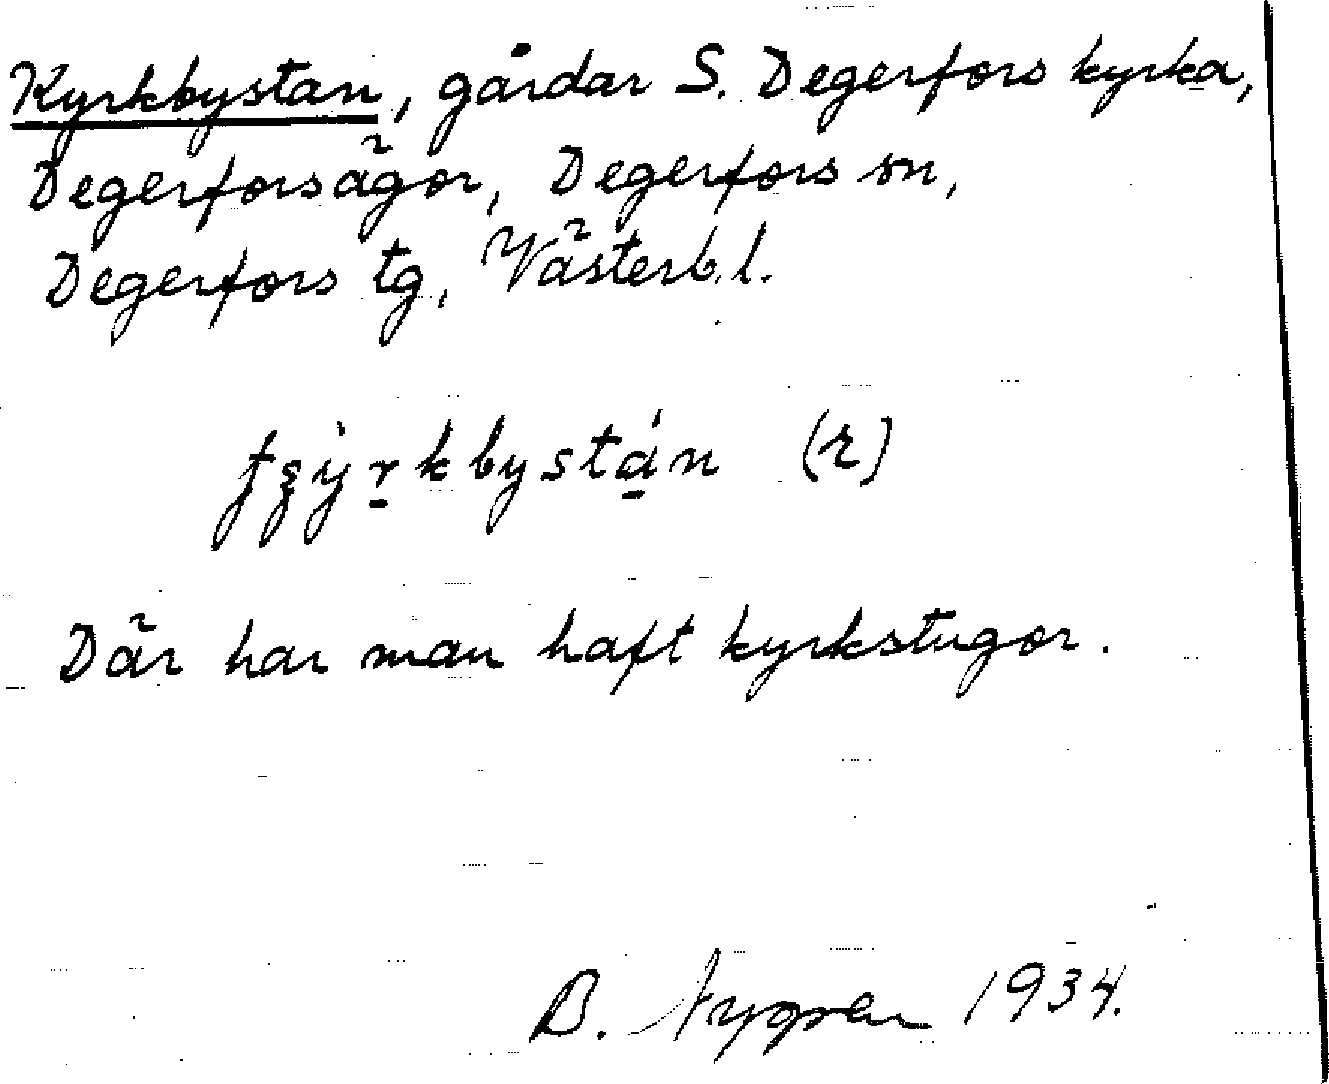 Kyrkbystan, gårdar S. Degerfors kyrka,
Degerforsägor, Degerfors sn,
Degerfors tg, Västerb. l.
(r)
Där har man haft kyrkstugor.
B. Nygren 1934.